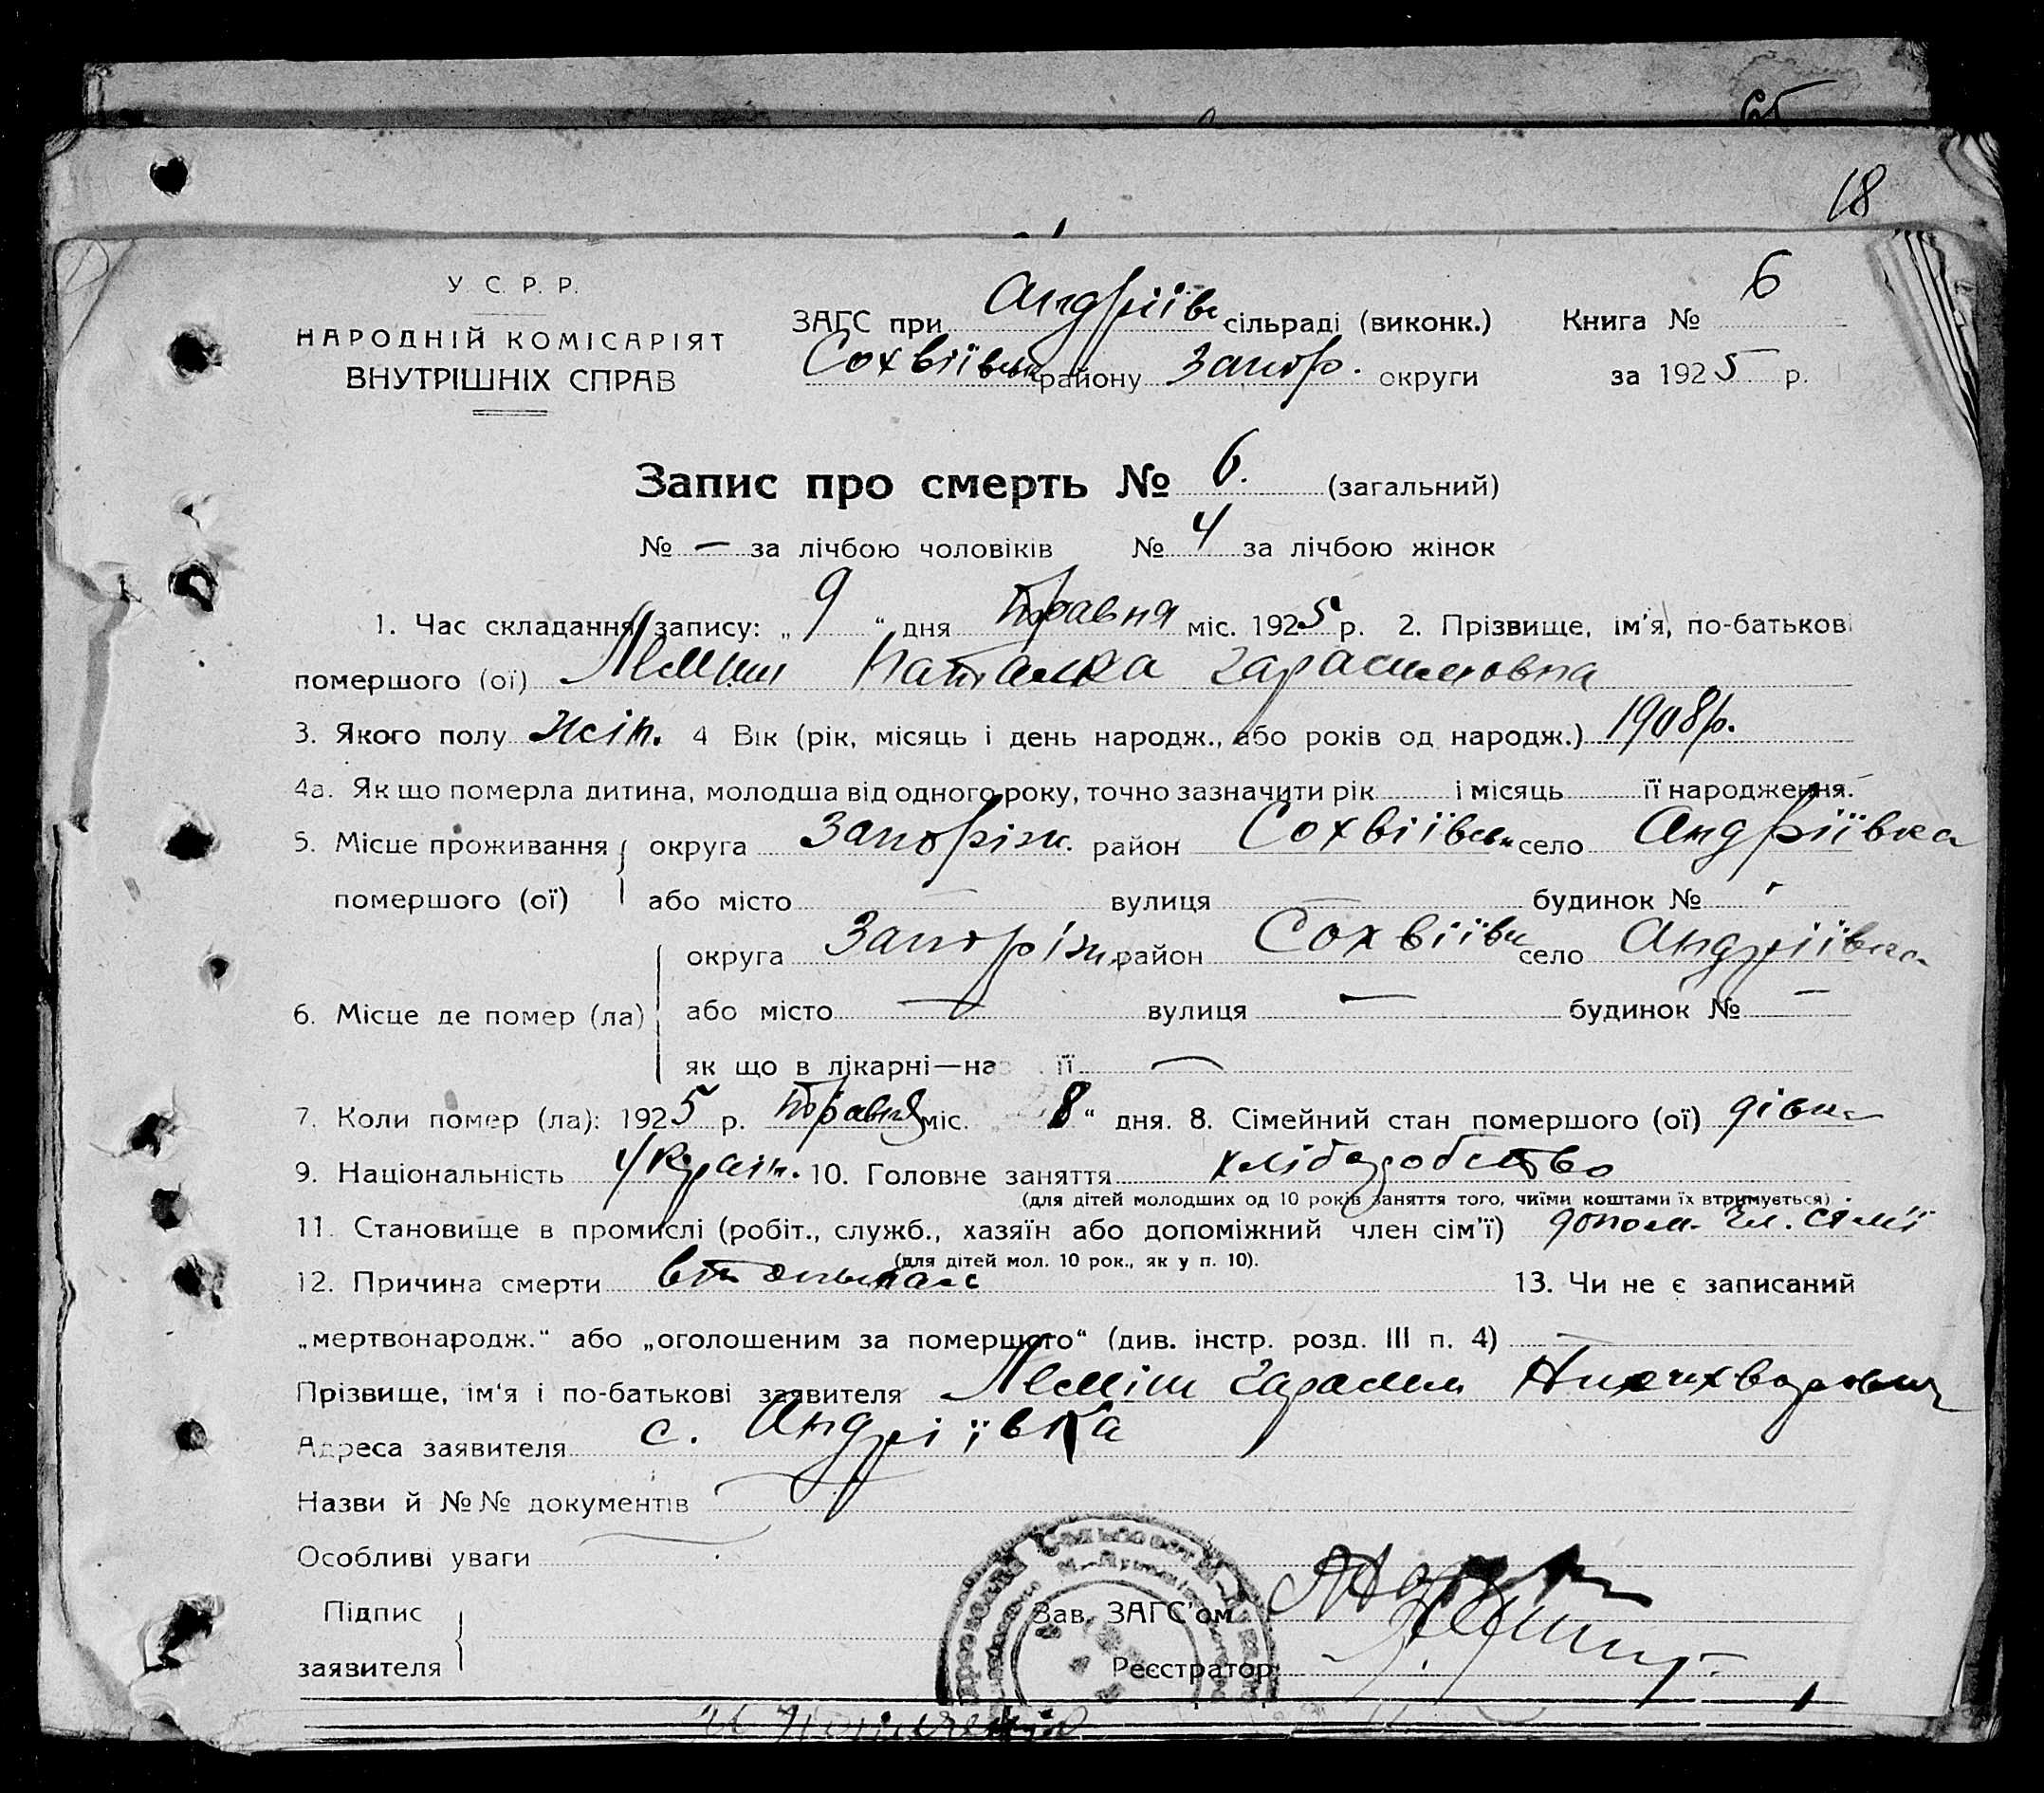 18
У. С. Р. Р.
НАРОДНІЙ КОМІСАРІЯТ
ВНУТРІШНІХ СПРАВ
ЗАГС при Андріївс сільраді (виконк.)
Сохвіївськ району Запор. округи
Книга № 6
за 1925 р.
Запис про смерть № 6. (загальний)
№ — за лічбою чоловіків № 4 за лічбою жінок
1. Час складання запису: „ 9 “ дня Травня міс. 1925 р. 2. Прізвище, ім'я, по-батькові
помершого (ої) Леміш Наталка Гарасимовна
3. Якого полу жін. 4 Вік (рік, місяць і день народж., або років од народж.) 1908 р.
4а. Як що померла дитина, молодша від одного року, точно зазначити рік і місяць її народження. —
5. Місце проживання округа Запоріж. район Сохвіївськ село Андріївка
помершого (ої) або місто — вулиця — будинок №
округа Запоріж. район Сохвіївк село Андріївка
6. Місце де помер (ла) або місто — вулиця — будинок № —
як що в лікарні—наз її —
7. Коли помер (ла): 1925 р. Травня міс. 8 “ дня. 8. Сімейний стан помершого (ої) дівка
9. Національність Україн. 10. Головне заняття хліборобство
(для дітей молодших од 10 років заняття того, чиїми коштами їх втримується)
11. Становище в промислі (робіт., служб., хазяїн або допоміжний член сім'ї) допом. чл. сем'ї
(для дітей мол. 10 рок., як у п. 10).
12. Причина смерти 13. Чи не є записаний
„мертвонародж.“ або „оголошеним за помершого“ (див. інстр. розд. III п. 4) —
Прізвище, ім'я і по-батькові заявителя Леміш Гарасим
Адреса заявителя с. Андріївка
Назви й №№ документів —
Особливі уваги
Підпис
заявителя
Зав. ЗАГС'ом
Реєстратор